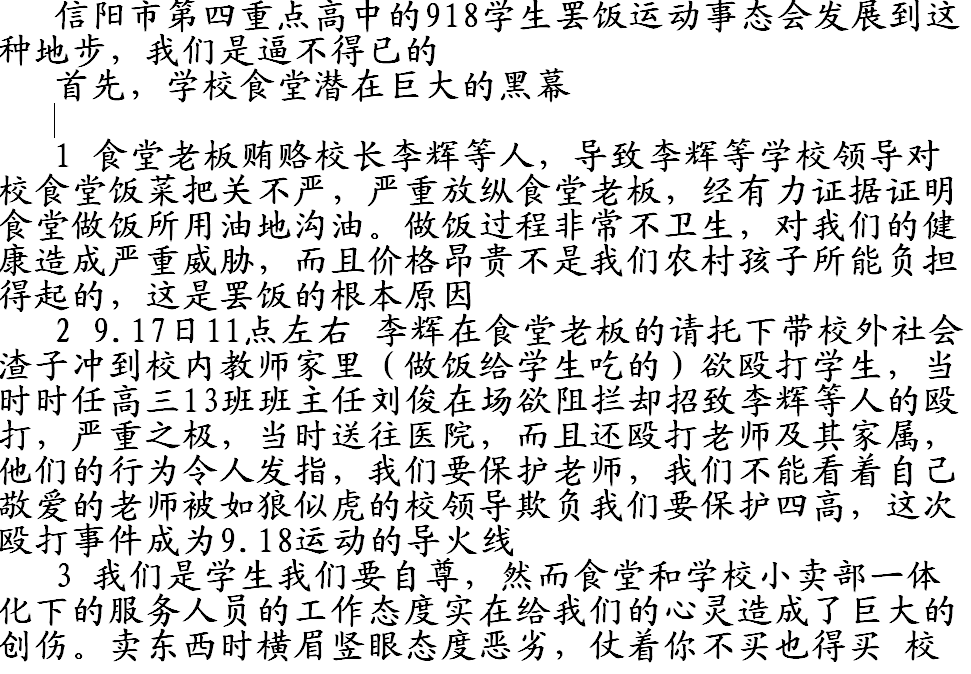 信阳市第四重点高中的918学生罢饭运动事态会发展到这
种地步，我们是逼不得已的
首先，学校食堂潜在巨大的黑幕
1 食堂老板贿赂校长李辉等人，导致李辉等学校领导对
校食堂饭菜把关不严，严重放纵食堂老板，经有力证据证明
食堂做饭所用油地沟油。做饭过程非常不卫生，对我们的健
康造成严重威胁，而且价格昂贵不是我们农村孩子所能负担
得起的，这是罢饭的根本原因
2 9.17日11点左右 李辉在食堂老板的请托下带校外社会
渣子冲到校内教师家里（做饭给学生吃的）欲殴打学生，当
时时任高三13班班主任刘俊在场欲阻拦却招致李辉等人的殴
打，严重之极，当时送往医院，而且还殴打老师及其家属，
他们的行为令人发指，我们要保护老师，我们不能看着自己
敬爱的老师被如狼似虎的校领导欺负我们要保护四高，这次
殴打事件成为9.18运动的导火线
3 我们是学生我们要自尊，然而食堂和学校小卖部一体
化下的服务人员的工作态度实在给我们的心灵造成了巨大的
创伤。卖东西时横眉竖眼态度恶劣，仗着你不买也得买 校